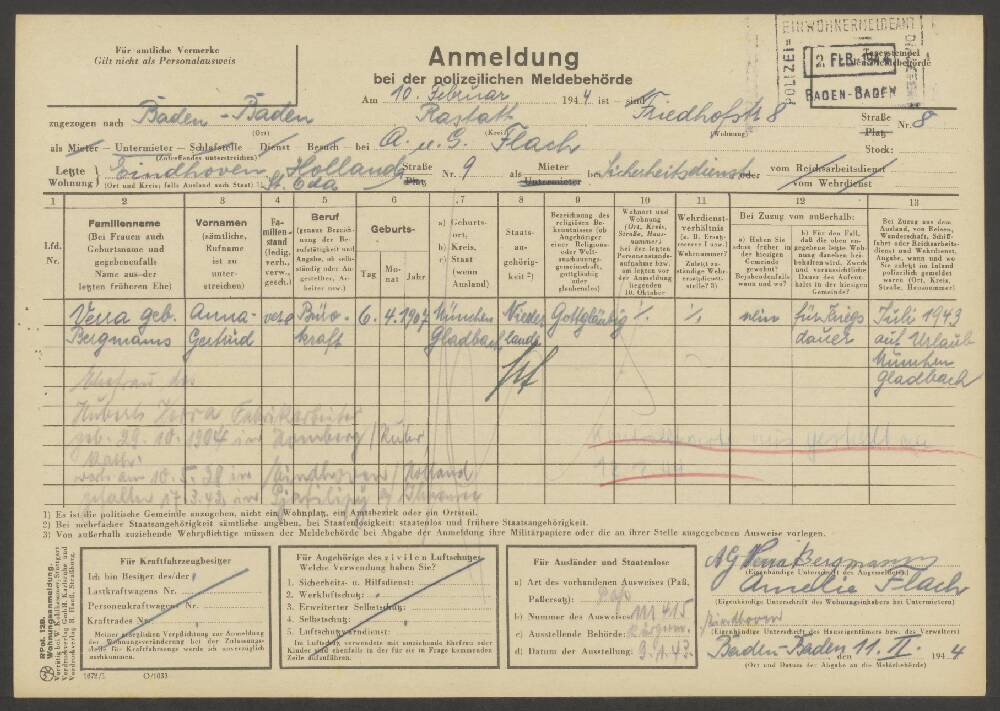 Für amtliche Vermerke
Gilt nicht als Personalausweis
EINWOHNERMELDEAMT
POLIZEI=
FEB. 1944
BADEN-BADEN
Tagesstempel
der Meldebehörde
Anmeldung
bei der polizeilichen Meldebehörde
Am 10. Februar 1944 ist — sind
zugezogen nach Baden-Baden Rastatt Friedhofstr 8 Straße Platz Nr. 8
(Ort) (Kreis) (Wohnung)
als Mieter — Untermieter — Schlafstelle — Dienst — Besuch — bei A. u. G. Flach Stock:
(Zutreffendes unterstreichen)
Letzte Wohnung Eindhoven, Holland, St. Eda Straße Platz Nr. 9 als Mieter Untermieter bei Sicherheitsdienst oder vom Reichsarbeitsdienst vom Wehrdienst
(Ort und Kreis; falls Ausland auch Staat)
1 2 3 4 5 6 7 8 9 10 11 12 13
Lfd. Nr.
Familienname
(Bei Frauen auch Geburtsname und gegebenenfalls Name aus der letzten früheren Ehe)
Vornamen
(sämtliche, Rufname ist zu unterstreichen)
Familienstand
(ledig, verh., verw., gesch.)
Beruf
Geburts-
Tag Monat Jahr
a) Geburtsort,
b) Kreis,
c) Staat
(wenn Ausland)
Staatsangehörigkeit 2)
Bezeichnung des religiösen Bekenntnisses (ob Angehöriger einer Religions- oder Weltanschauungsgemeinschaft, gottgläubig oder glaubenslos)
Wohnort und Wohnung
(Ort, Kreis, Straße, Hausnummer) bei der letzten Personenstandsaufnahme bzw. am letzten vor der Anmeldung liegenden 10. Oktober
Wehrdienstverhältnis
(z. B. Ersatzreserve I usw.) Wehrnummer? Zuletzt zuständige Wehrersatzdienststelle? 3)
Bei Zuzug von außerhalb:
a) Haben Sie schon früher in der hiesigen Gemeinde gewohnt? Bejahendenfalls wann und wo?
b) Für den Fall, daß die oben angegebene letzte Wohnung daneben beibehalten wird, Zweck und voraussichtliche Dauer des Aufenthalts in der hiesigen Gemeinde?
Bei Zuzug aus dem Ausland, von Reisen, Wanderschaft, Schifffahrt oder Reichsarbeitsdienst und Wehrdienst, Angabe, wann und wo Sie zuletzt im Inland polizeilich gemeldet waren (Ort, Kreis, Straße, Hausnummer)
Verra geb. Anna- Büro- 6. 4. 1907 München Nieder Gottgläubig 1/. 1/. nein für Kriegs Juli 1943
Bergmanns Gertrud kraft Gladbach lande dauer auf Urlaub
München
Gladbach
Ehefrau des
Huberts Verra Fabrikarbeiter
geb. 29. 10. 1904 in Homberg / Ruhr
10. 5. 28 in Eindhoven / Holland
17. 3. 42 in
1) Es ist die politische Gemeinde anzugeben, nicht ein Wohnplatz, ein Amtsbezirk oder ein Ortsteil.
2) Bei mehrfacher Staatsangehörigkeit sämtliche angeben, bei Staatenlosigkeit: staatenlos und frühere Staatsangehörigkeit.
3) Von außerhalb zuziehende Wehrpflichtige müssen der Meldebehörde bei Abgabe der Anmeldung ihre Militärpapiere oder die an ihrer Stelle ausgegebenen Ausweise vorlegen.
RPol. 12B.
Wohnungsanmeldung.
Für Kraftfahrzeugbesitzer
Ich bin Besitzer des/der
Lastkraftwagens Nr.
Personenkraftwagens Nr.
Kraftrades Nr.
Meiner etwaigen Verpflichtung zur Anmeldung der Wohnungsveränderung bei der Zulassungsstelle für Kraftfahrzeuge werde ich unverzüglich nachkommen.
Für Angehörige des zivilen Luftschutzes
Welche Verwendung haben Sie?
1. Sicherheits- u. Hilfsdienst:
2. Werkluftschutz:
3. Erweiterter Selbstschutz:
4. Selbstschutz:
5. Luftschutzwarndienst:
Im Luftschutz verwendete mit umziehende Ehefrau oder Kinder sind ebenfalls in der für sie in Frage kommenden Zeile aufzuführen.
Für Ausländer und Staatenlose
a) Art des vorhandenen Ausweises (Paß, Paßersatz): Paß
b) Nummer des Ausweises: M 415
c) Ausstellende Behörde:
d) Datum der Ausstellung: 9. 1. 43.
AG Verra Bergmanns
(Eigenhändige Unterschrift des Angemeldeten)
Amelie Flach
(Eigenhändige Unterschrift des Wohnungsinhabers bei Untermietern)
Eindhoven
(Eigenhändige Unterschrift des Hauseigentümers bzw. des Verwalters)
Baden-Baden, den 11. II. 1944
(Ort und Datum der Abgabe an die Meldebehörde)
1672/5 O/1033